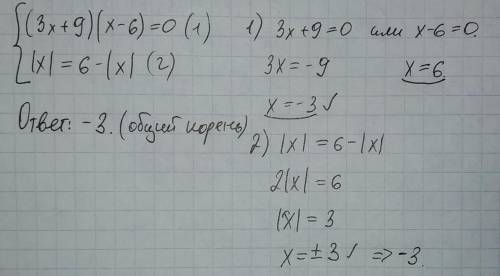 (3x+9)(x-6)=0 (1)
|x| = 6-|x| (2)
Ответ: -3. (общий корень)
1) 3x+9=0 или x-6=0.
3x=-9 x=6
x=-3 ✓
2) |x| = 6-|x|
2|x| = 6
|x| = 3
x=±3 ✓ => -3.